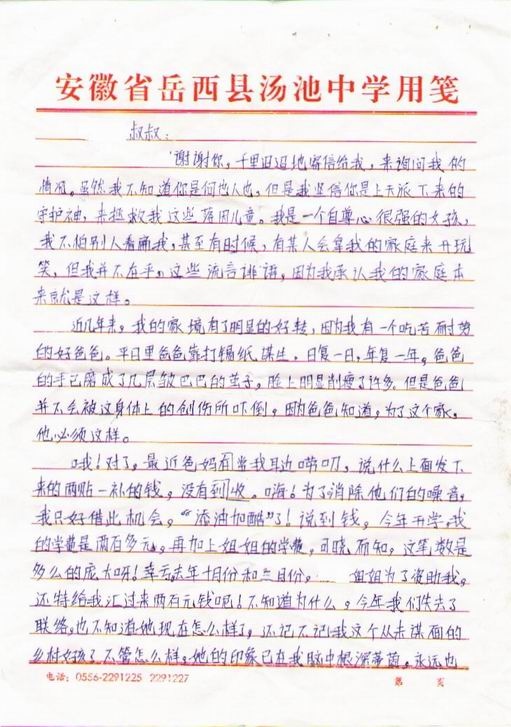 安徽省岳西县汤池中学用笺
叔叔：
谢谢你，千里迢迢地寄信给我，来询问我的
情况。虽然我不知道你是何也人也，但是我坚信你是上天派下来的
守护神，来拯救我这些落困儿童。我是一个自尊心很强的女孩，
我不怕别人看扁我，甚至有时候，有某人会拿我的家庭来开玩
笑，但我并不在乎。这些流言诽谤，因为我承认我的家庭本
来就是这样。
近几年来，我的家境有了明显的好转，因为我有一个吃苦耐劳
的好爸爸。平日里爸爸靠打锡纸谋生，日复一日，年复一年，爸爸
的手已磨成了几层皱巴巴的茧子，脸上明显削瘦了许多，但是爸爸
并不会被这身体上的创伤所吓倒。因为爸爸知道，为了这个家，
他必须这样。
哦！对了，最近爸妈在我耳边唠叨，说什么上面发下
来的两贴一补的钱，没有到收。嗨！为了消除他们的噪音，
我只好借此机会，“添油加醋”了！说到钱，今年开学，我
的学费是两百多元，再加上姐姐的学费，可晓而知，这笔数是
多么的庞大呀！幸亏去年十月份和三月份， 姐姐为了资助我，
还特给我汇过来两百元钱呢！不知道为什么，今年我们失去了
联络，也不知道她现在怎么样了，还记不记我这个从未谋面的
乡村女孩了，不管怎么样，她的印象已在我脑中根深蒂固，永远也
电话：0556-2291225 2291227 第 页